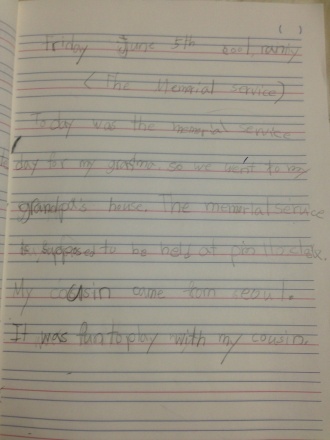 ( )
Friday June 5th cool, windy
( The Memorial service )
Today was the memorial service
day for my grandma. so we went to my
grandpa's house. The memorial service
is supposed to be held at pm 11 o'clock.
My cousin came from seoul.
It was fun to play with my cousin.